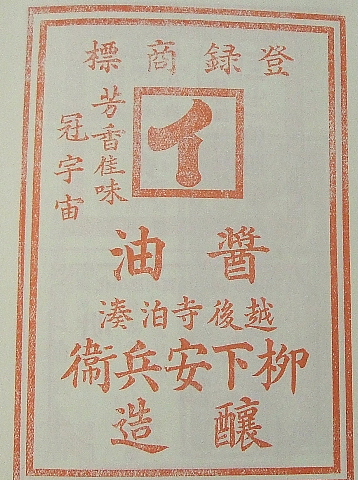 登録商標
イ
芳香佳味
冠宇宙
醤油
越後寺泊湊
柳下安兵衞
醸造